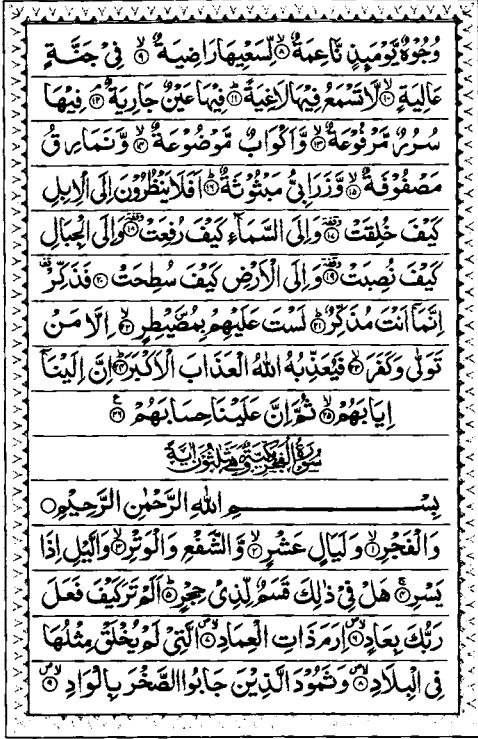 وُجُوۡهٌ يَّوۡمَىِٕذٍ نَّاعِمَةٌ ۙ‏﴿۸﴾ لِّسَعۡيِهَا رَاضِيَةٌ ۙ‏﴿۹﴾ فِىۡ جَنَّةٍ
عَالِيَةٍ ۙ‏﴿۱۰﴾ لَّا تَسۡمَعُ فِيۡهَا لَاغِيَةً ؕ‏﴿۱۱﴾ فِيۡهَا عَيۡنٌ جَارِيَةٌ ۘ‏﴿۱۲﴾ فِيۡهَا
سُرُرٌ مَّرۡفُوۡعَةٌ ۙ‏﴿۱۳﴾ وَّاَكۡوَابٌ مَّوۡضُوۡعَةٌ ۙ‏﴿۱۴﴾ وَّنَمَارِقُ
مَصۡفُوۡفَةٌ ۙ‏﴿۱۵﴾ وَّزَرَابِىُّ مَبۡثُوۡثَةٌ ؕ‏﴿۱۶﴾ اَفَلَا يَنۡظُرُوۡنَ اِلَى الۡاِبِلِ
كَيۡفَ خُلِقَتۡ ۥ‏﴿۱۷﴾ وَاِلَى السَّمَآءِ كَيۡفَ رُفِعَتۡ ۥ‏﴿۱۸﴾ وَاِلَى الۡجِبَالِ
كَيۡفَ نُصِبَتۡ ۥ‏﴿۱۹﴾ وَاِلَى الۡاَرۡضِ كَيۡفَ سُطِحَتۡ‏﴿۲۰﴾ فَذَكِّرۡ
اِنَّمَاۤ اَنۡتَ مُذَكِّرٌ ؕ‏﴿۲۱﴾ لَسۡتَ عَلَيۡهِمۡ بِمُصَۜيۡطِرٍۙ‏﴿۲۲﴾ اِلَّا مَنۡ
تَوَلّٰى وَكَفَرَۙ‏﴿۲۳﴾ فَيُعَذِّبُهُ اللّٰهُ الۡعَذَابَ الۡاَكۡبَرَؕ‏﴿۲۴﴾ اِنَّ اِلَيۡنَاۤ
اِيَابَهُمۡۙ‏﴿۲۵﴾ ثُمَّ اِنَّ عَلَيۡنَا حِسَابَهُمۡ‏﴿۲۶﴾
سُوۡرَةُ الۡفَجۡرِ مَكِّيَّةٌ وَّهِىَ ثَلٰثُوۡنَ اٰيَةً
بِسۡمِ اللّٰهِ الرَّحۡمٰنِ الرَّحِيۡمِ
وَالۡفَجۡرِۙ‏﴿۱﴾ وَلَيَالٍ عَشۡرٍۙ‏﴿۲﴾ وَّالشَّفۡعِ وَالۡوَتۡرِۙ‏﴿۳﴾ وَالَّيۡلِ اِذَا
يَسۡرِۚ‏﴿۴﴾ هَلۡ فِىۡ ذٰلِكَ قَسَمٌ لِّذِىۡ حِجۡرٍؕ‏﴿۵﴾ اَلَمۡ تَرَ كَيۡفَ فَعَلَ
رَبُّكَ بِعَادٍۙ‏﴿۶﴾ اِرَمَ ذَاتِ الۡعِمَادِۙ‏﴿۷﴾ الَّتِىۡ لَمۡ يُخۡلَقۡ مِثۡلُهَا
فِى الۡبِلَادِۙ‏﴿۸﴾ وَثَمُوۡدَ الَّذِيۡنَ جَابُوا الصَّخۡرَ بِالۡوَادِۙ‏﴿۹﴾